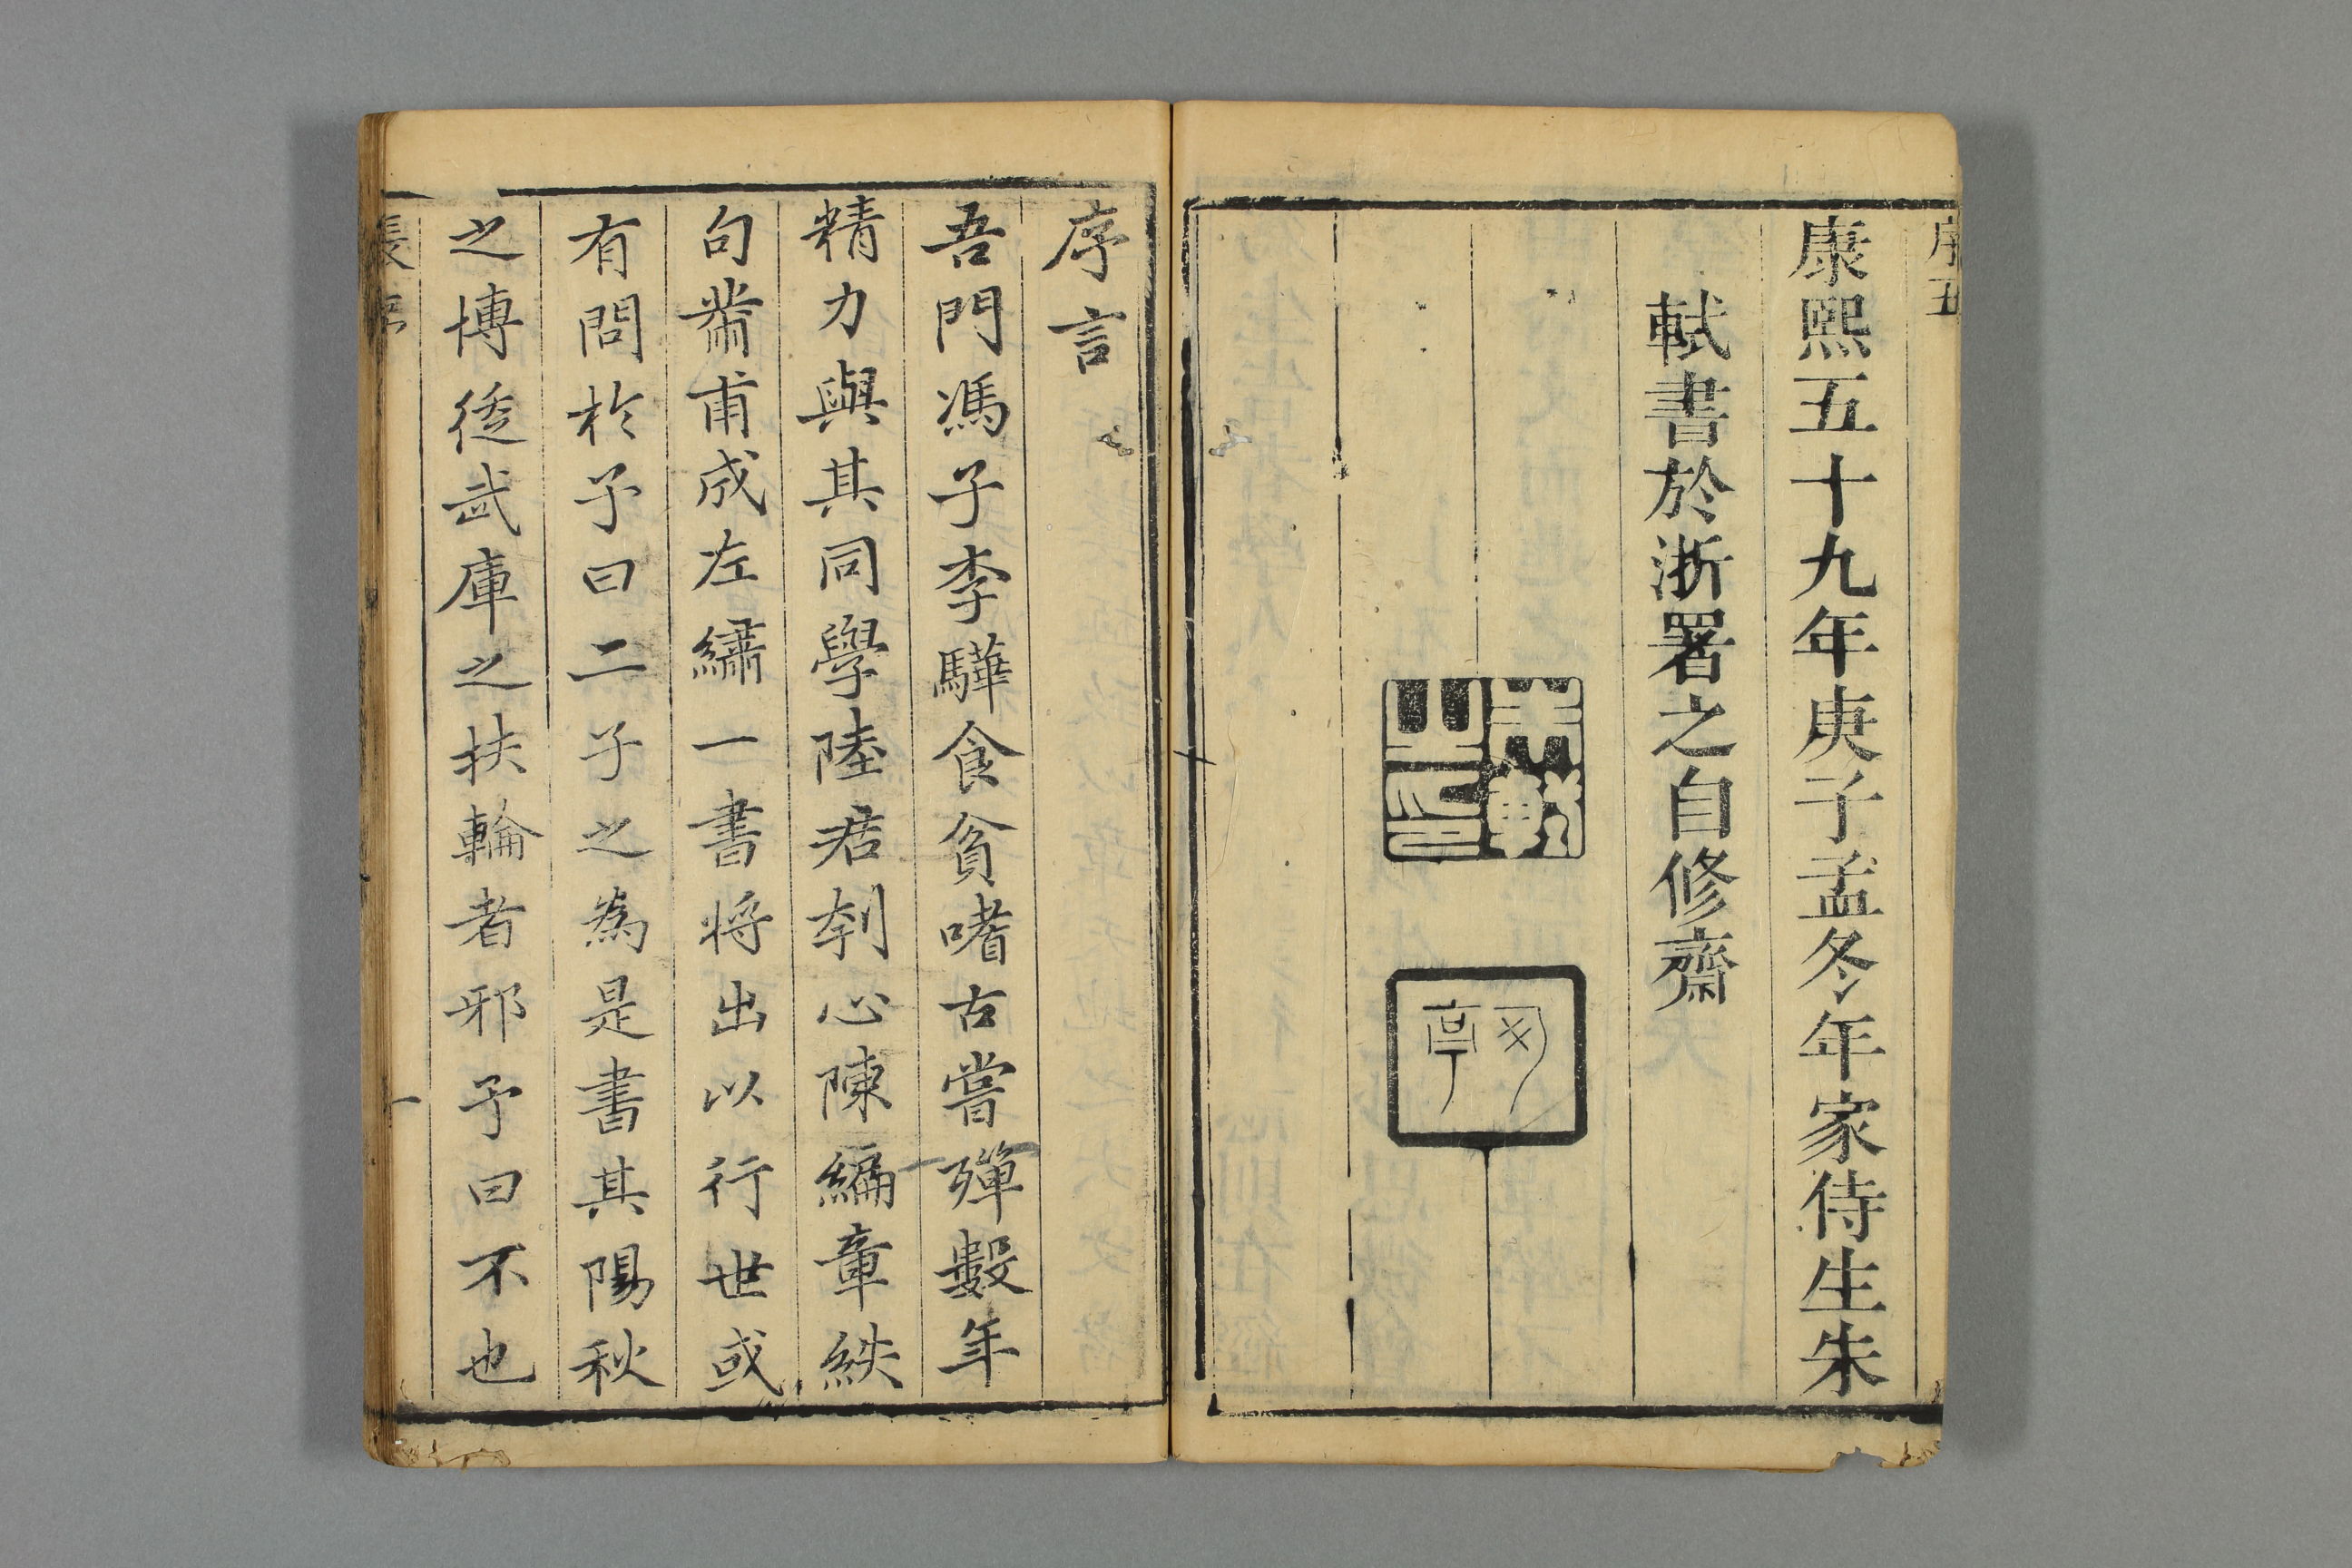 康熙五十九年庚子孟冬年家侍生朱
軾書於浙署之自修齋
序言
吾門馮子李驊食貧嗜古嘗殫數年
精力與其同學陸君刳心陳編章紩
句黹甫成左繡一書将出以行世或
有問於予曰二子之為是書其陽秋
之博徒武庫之扶輪者邪予曰不也